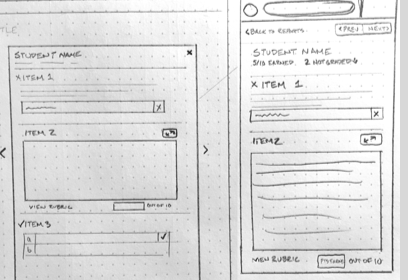 TLE
STUDENT NAME
x
X ITEM 1
X
ITEM 2
VIEW RUBRIC
OUT OF 10
✓ITEM 3
a
✓
b
< BACK TO REPORTS
< PREV
NEXT >
STUDENT NAME
5/10 EARNED. 2 NOT GRADED
X ITEM 1
X
ITEM 2
VIEW RUBRIC
OUT OF 10